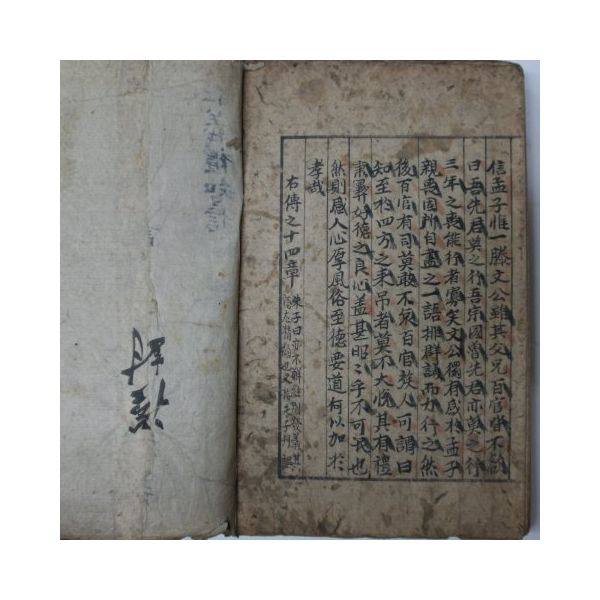 信孟子惟一滕文公雖其父兄百官皆不欲
曰吾先君莫之行吾宗國魯先君亦莫之行
三年之喪能行者寡矣文公獨有感於孟子
親喪固所自盡之一語排群議而力行之然
後百官有司莫敢不哀百官族人可謂曰
知至於四方之來吊者莫不大悅其有禮
秉彛好德之良心盖甚昭昭乎不可民也
然則感人心厚風俗至德要道何以加於
孝哉
右傳之十四章
朱子曰亦不解經
禮知信